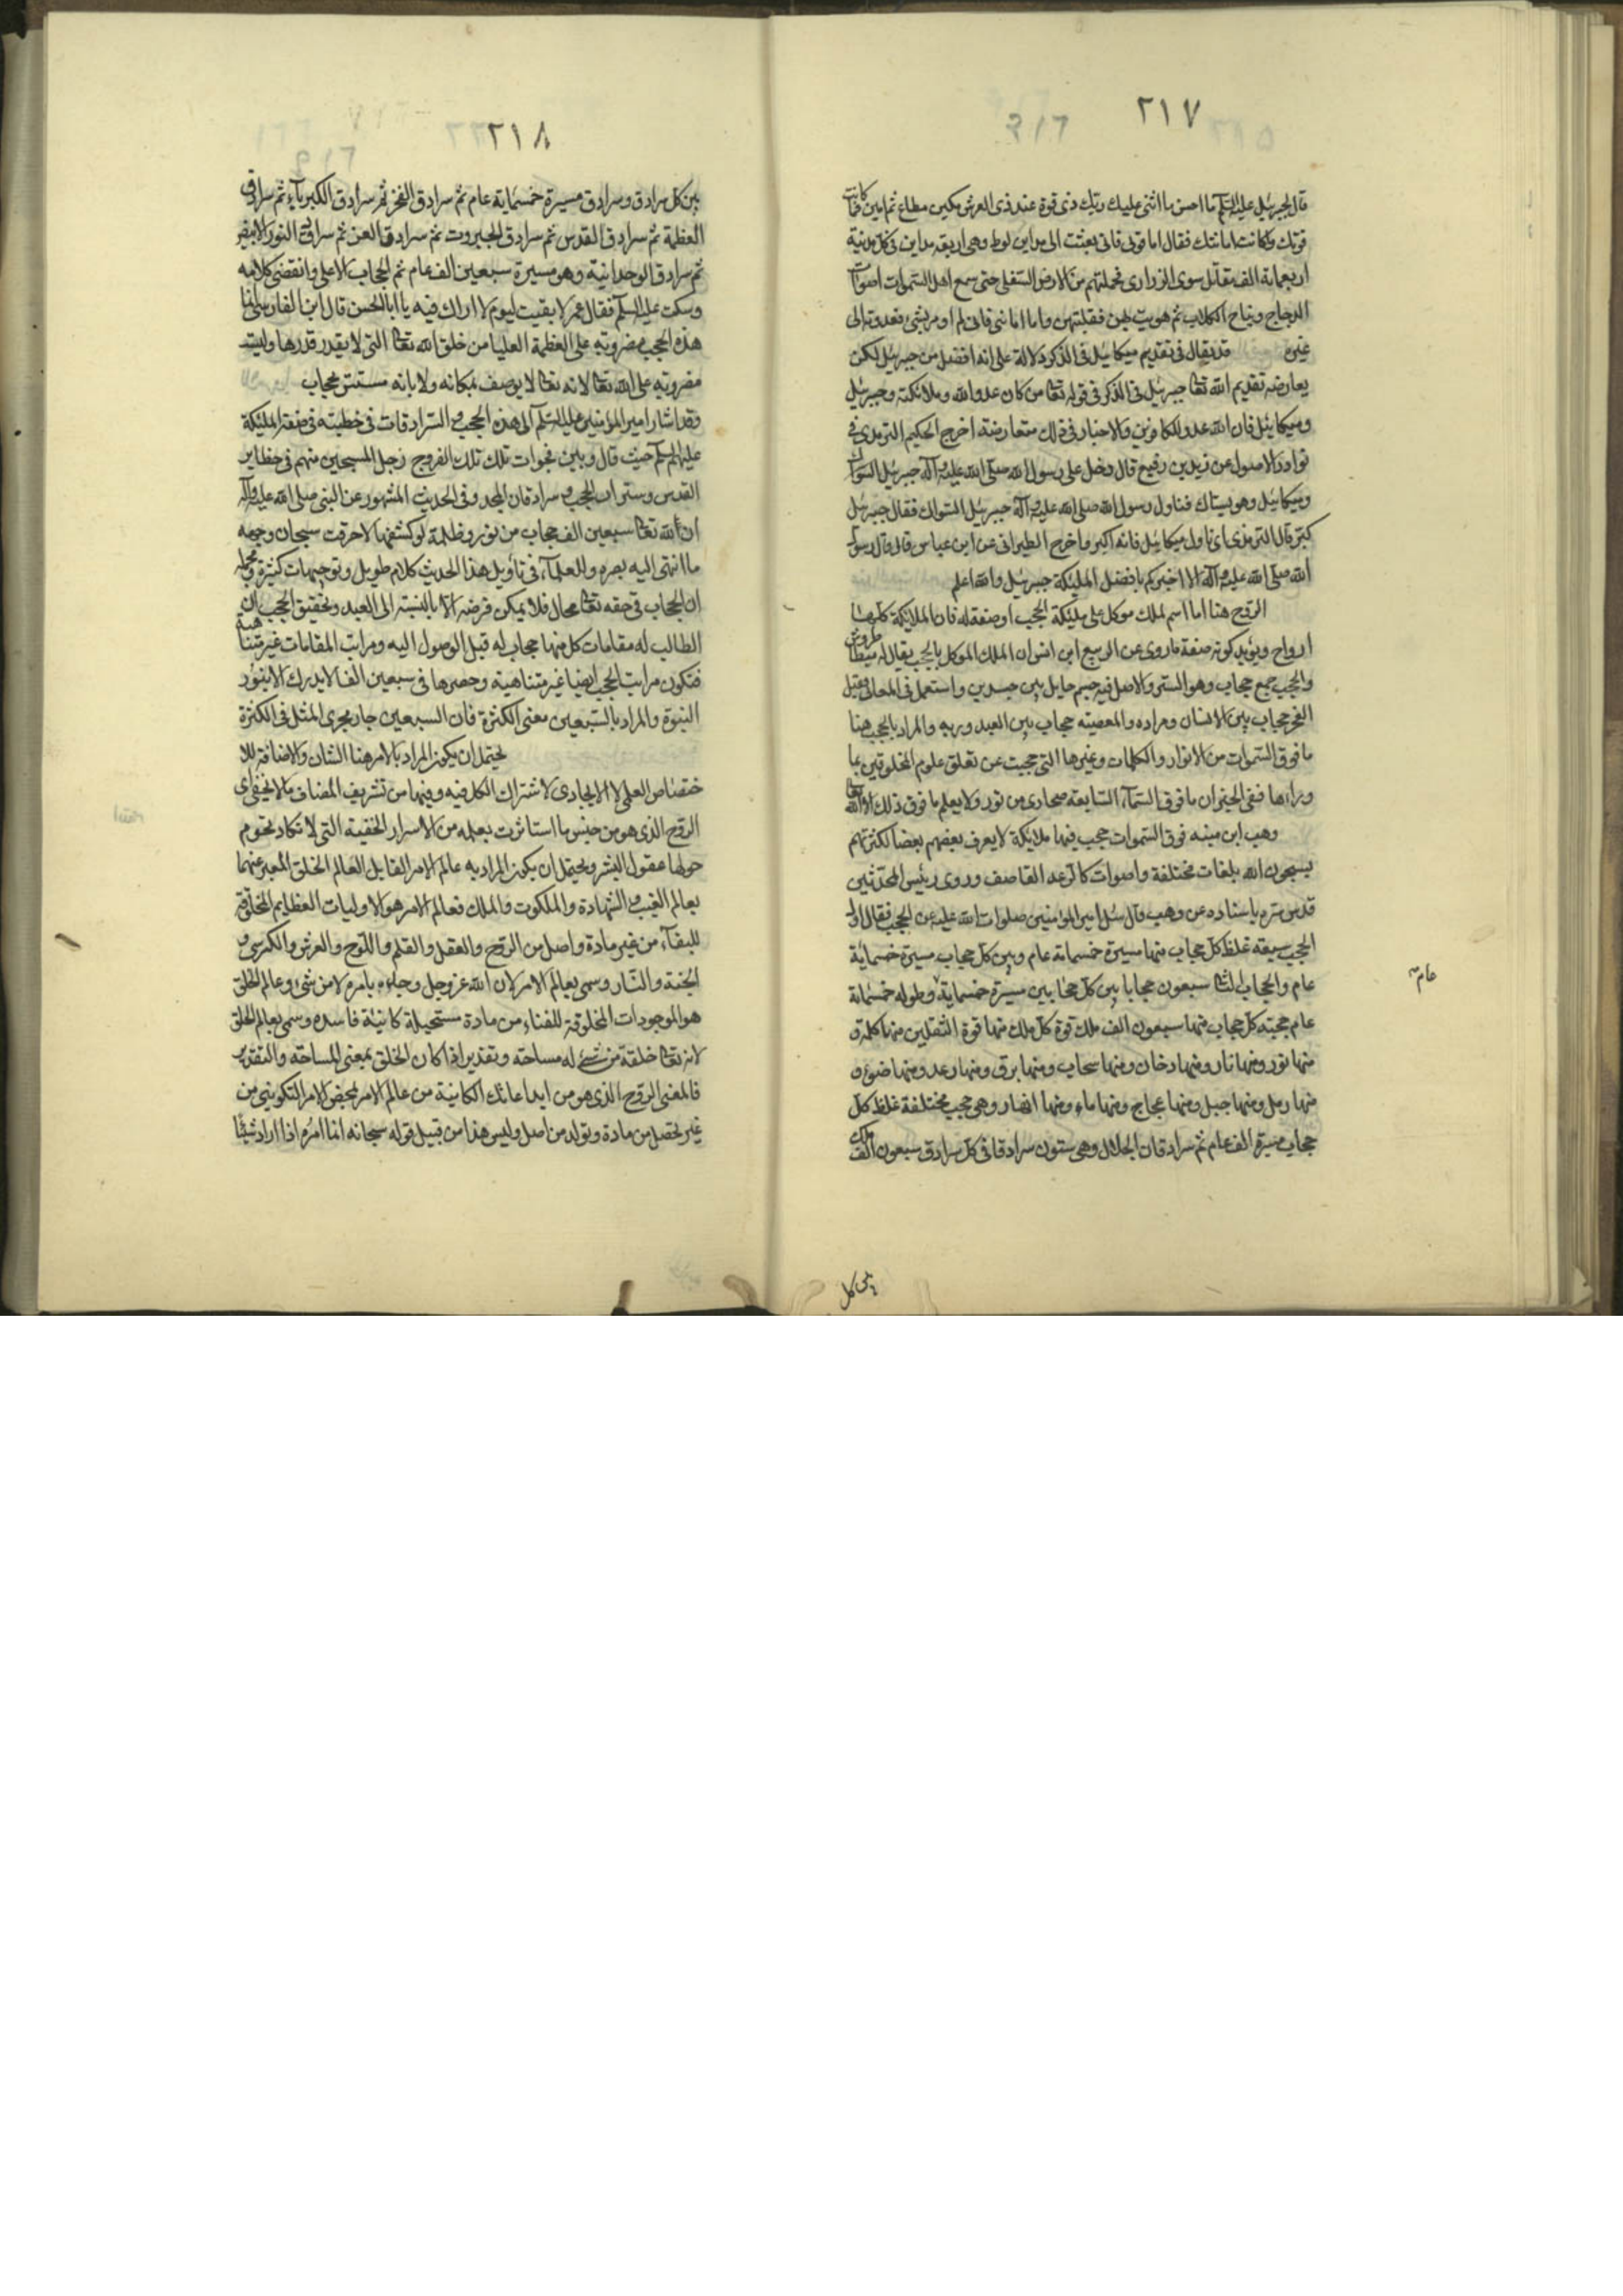 ٢١٧
قال لجبرئيل عليه السلم ما احسن ما اثنى عليك ربك ذى قوة عند ذى العرش مكين مطاع ثم امين ما كانت
قوتك وما كانت امانتك فقال اما قوتى فانى بعثت الى مداين لوط وهى اربعة مداين فى كل مدينة
اربعمائة الف مقاتل سوى الذرارى فحملتهم من الارض السفلى حتى سمع اهل السموات اصوات
الدجاج ونباح الكلاب ثم هويت بهن فقلبتهن واما امانتى فانى لم اومر بشئ فعدوته الى
غيره قد يقال فى تقديم ميكائيل فى الذكر دلالة على انه افضل من جبرئيل لكن
يعارضه تقديم الله تعا جبرئيل فى الذكر فى قوله تعا من كان عدوا لله وملائكته وجبرئيل
وميكائيل فان الله عدو للكافرين والاخبار فى ذلك متعارضة اخرج الحكيم الترمذى فى
نوادر الاصول عن زيد بن رفيع قال دخل على رسول الله صلى الله عليه وآله جبرئيل
وميكائيل وهو يستاك فناول رسول الله صلى الله عليه وآله جبرئيل السواك فقال جبرئيل
كبر قال الترمذى اى ناول ميكائيل فانه اكبر واخرج الطبرانى عن ابن عباس قال قال رسول
الله صلى الله عليه وآله الا اخبركم بافضل المليكة جبرئيل والله اعلم
الروح هنا اما اسم لملك موكل على مليكة الحجب او صفة له فان الملائكة كلها
ارواح ويؤيد كونه صفة ماروى عن الربيع ابن انس ان الملك الموكل بالحجب يقال له ميططروش
والحجب جمع حجاب وهو الستر والاصل فيه جسم حايل بين جسدين واستعمل فى المعانى فقيل
العجز حجاب بين الانسان ومراده والمعصية حجاب بين العبد وربه والمراد بالحجب هنا
مافوق السموات من الانوار والظلمات وغيرها التى حجبت عن تعلق علوم المخلوقين بما
وراءها ففى الخبر ان مافوق السمآء السابعة صحارى من نور ولا يعلم ما فوق ذلك الا الله تعا
وهب ابن منبه فوق السموات حجب فيها ملائكة لا يعرف بعضهم بعضا لكثرتهم
يسبحون الله بلغات مختلفة واصوات كالرعد القاصف وروى رئيس المحدثين
قدس سره باسناده عن وهب قال سئل امير المؤمنين صلوات الله عليه عن الحجب فقال اول
الحجب سبعة غلظ كل حجاب منها مسيرة خمسمائة عام وبين كل حجاب مسيرة خمسمائة
عام والحجاب الثا سبعون حجابا بين كل حجابين مسيرة خمسماية وطوله خمسمائة
عام
عام حجبة كل حجاب منها سبعون الف ملك قوة كل ملك منها قوة الثقلين منها ظلمة و
منها نور ومنها نار ومنها دخان ومنها سحاب ومنها برق ومنها رعد ومنها ضوء و
منها رمل ومنها جبل ومنها عجاج ومنها ماء ومنها انهار وهى حجب مختلفة غلظ كل
حجاب مسيرة الف عام ثم سرادقات الجلال وهى ستون سرادقا فى كل سرادق سبعون الف ملك
بين كل
٢١٨
بين كل سرادق وسرادق مسيرة خمسماية عام ثم سرادق الفخر ثم سرادق الكبريآء ثم سرادق
العظمة ثم سرادق القدس ثم سرادق الجبروت ثم سرادق العز ثم سرادق النور الابيض
ثم سرادق الوحدانية وهو مسيرة سبعين الف عام ثم الحجاب الاعلى وانقضى كلامه
وسكت عليه السلم فقال عمر لا بقيت ليوم لا اراك فيه يا ابا الحسن قال ابن الفارسى انما
هذه الحجب مضروبة على العظمة العليا من خلق الله تعا التى لا يقدر قدرها وليست
مضروبة على الله تعا لانه تعا لا يوصف بمكانه ولا بانه مستتر بحجاب
وقد اشار امير المؤمنين عليه السلم الى هذه الحجب والسرادقات فى خطبته فى صفة المليكة
عليهم السلم حيث قال وبين فجوات تلك تلك الفروج زجل المسبحين منهم فى حظاير
القدس وسترات الحجب وسرادقات المجد وفى الحديث المشهور عن النبى صلى الله عليه وآله
ان لله تعا سبعين الف حجاب من نور وظلمة لو كشفها لاحرقت سبحات وجهه
ما انتهى اليه بصره وللعلمآء فى تأويل هذا الحديث كلام طويل وتوجيهات كثيرة ومحمله
ان الحجاب فى حقه تعا محال فلا يمكن فرضه الا بالنسبة الى العبد وتحقيق الحجب ان
الطالب له مقامات كل منها حجاب له قبل الوصول اليه ومراتب المقامات غير متناهية
فتكون مراتب الحجب ايضا غير متناهية وحصرها فى سبعين الفا لا يدرك الا بنور
النبوة والمراد بالسبعين معنى الكثرة فان السبعين جار مجرى المثل فى الكثرة
يحتمل ان يكون المراد بالامر هنا الشان والاضافة للا
ختصاص العلمى لا الايجادى لاشتراك الكل فيه وفيها من تشريف المضاف ما لا يخفى اى
الروح الذى هو من جنس ما استاثرت بعلمه من الاسرار الخفية التى لا تكاد تحوم
حولها عقول البشر ويحتمل ان يكون المراد به عالم الامر المقابل العالم الخلق المعبر عنهما
بعالم الغيب والشهادة والملكوت والملك فعالم الامر هو الاوليات العظايم المخلوقة
للبقآء من غير مادة واصل من الروح والعقل والقلم واللوح والعرش والكرسى و
الجنة والنار وسمى بعالم الامر لان الله عز وجل بامره لا من شئ وعالم الخلق
هو الموجودات المخلوقة للفناء من مادة مستحيلة كائنة فاسدة وسمى بعالم الخلق
لانه تعا خلقه من شئ له مساحة وتقدير اذا كان الخلق بمعنى المساحة والتقدير
فالمعنى الروح الذى هو من ابداعاتك الكائنة من عالم الامر بمحض الامر التكوينى من
غير تحصل من مادة وتولد من اصل وليس هذا من قبيل قوله سبحانه انما امره اذا اراد شيئا